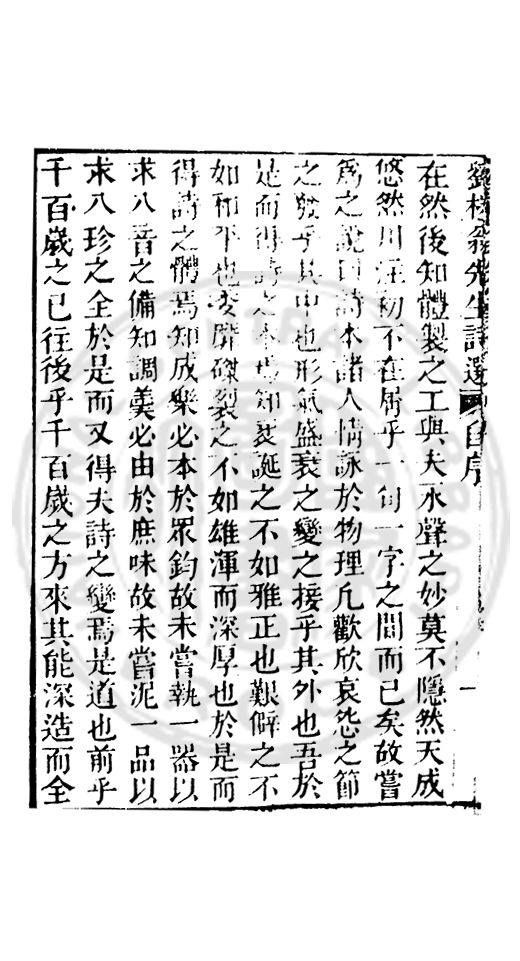 劉槎翁先生詩選 自序 一
在然後知體製之工與夫永聲之妙莫不隱然天成
悠然川注初不在屑乎一句一字之間而已矣故嘗
爲之說曰詩本諸人情詠於物理凡歡欣哀怨之節
之發乎其中也形氣盛衰之變之接乎其外也吾於
是而得詩之本焉知褻誕之不如雅正也艱僻之不
如和平也委靡磔裂之不如雄渾而深厚也於是而
得詩之體焉知成樂必本於眾鈞故未嘗執一器以
求八音之備知調羹必由於庶味故未嘗泥一品以
求八珍之全於是而又得夫詩之變焉是道也前乎
千百歲之已往後乎千百歲之方來其能深造而全